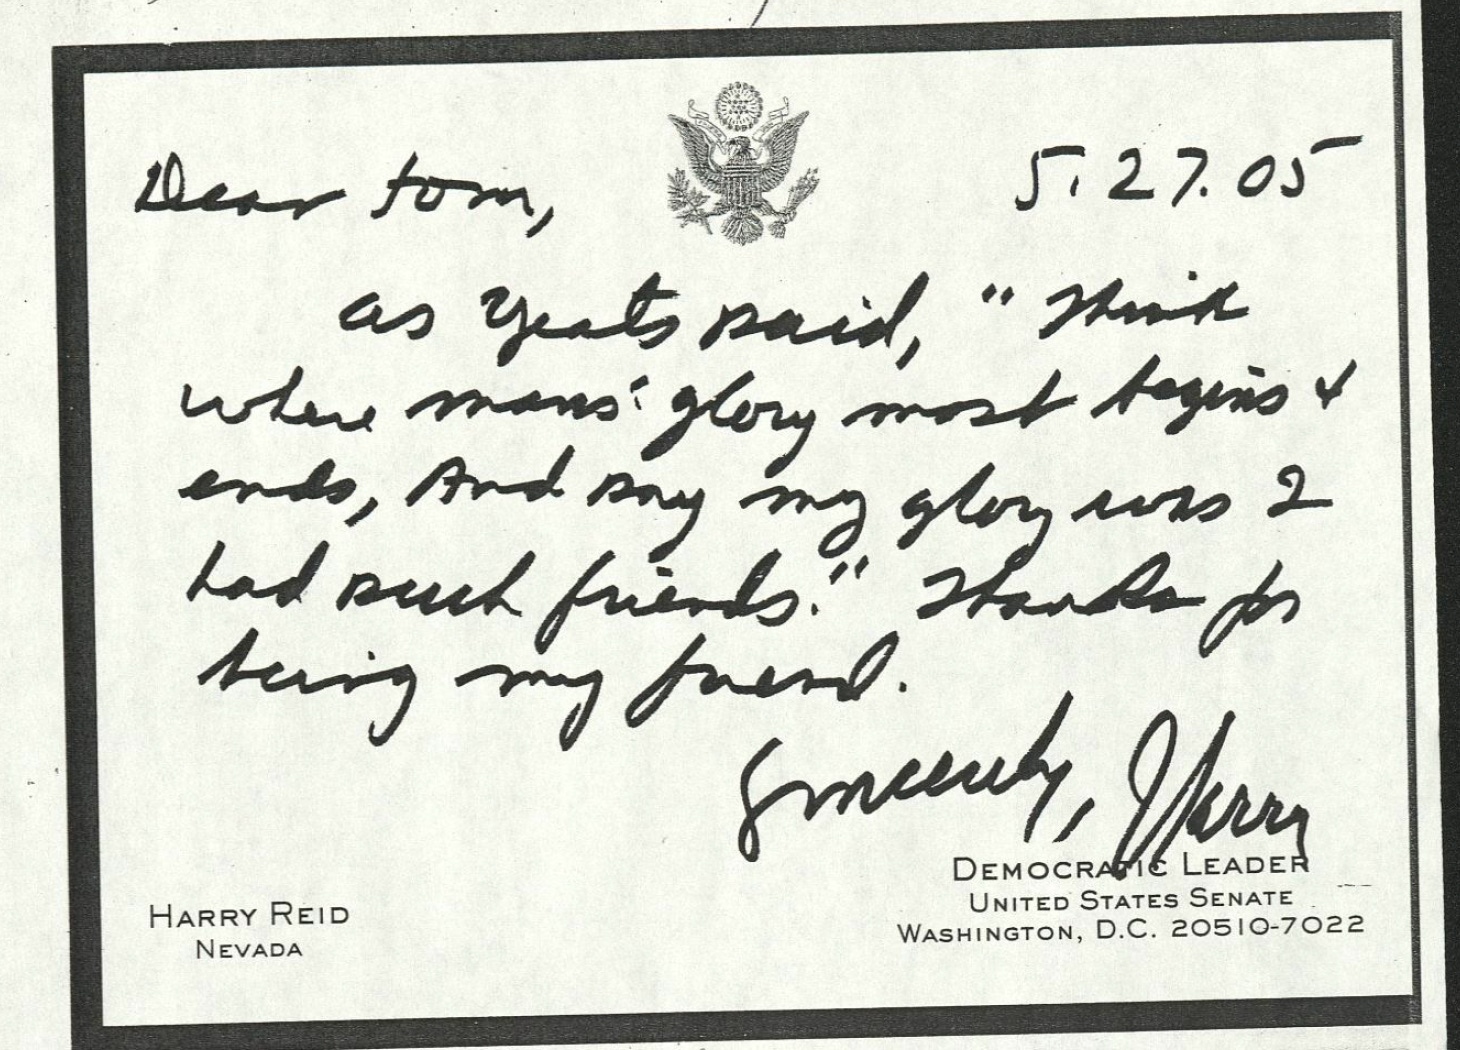 Dear Tom,
5.27.05
as Yeats said, "Think
where mans' glory most begins &
ends, And say my glory was I
had such friends." Thanks for
being my friend.
Sincerely, Harry
DEMOCRATIC LEADER
UNITED STATES SENATE
WASHINGTON, D.C. 20510-7022
HARRY REID
NEVADA